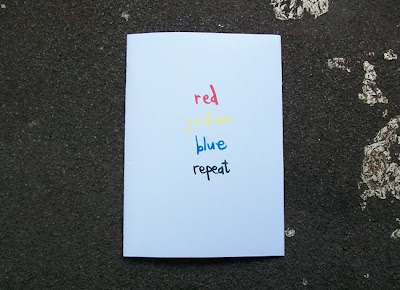 red
yellow
blue
repeat